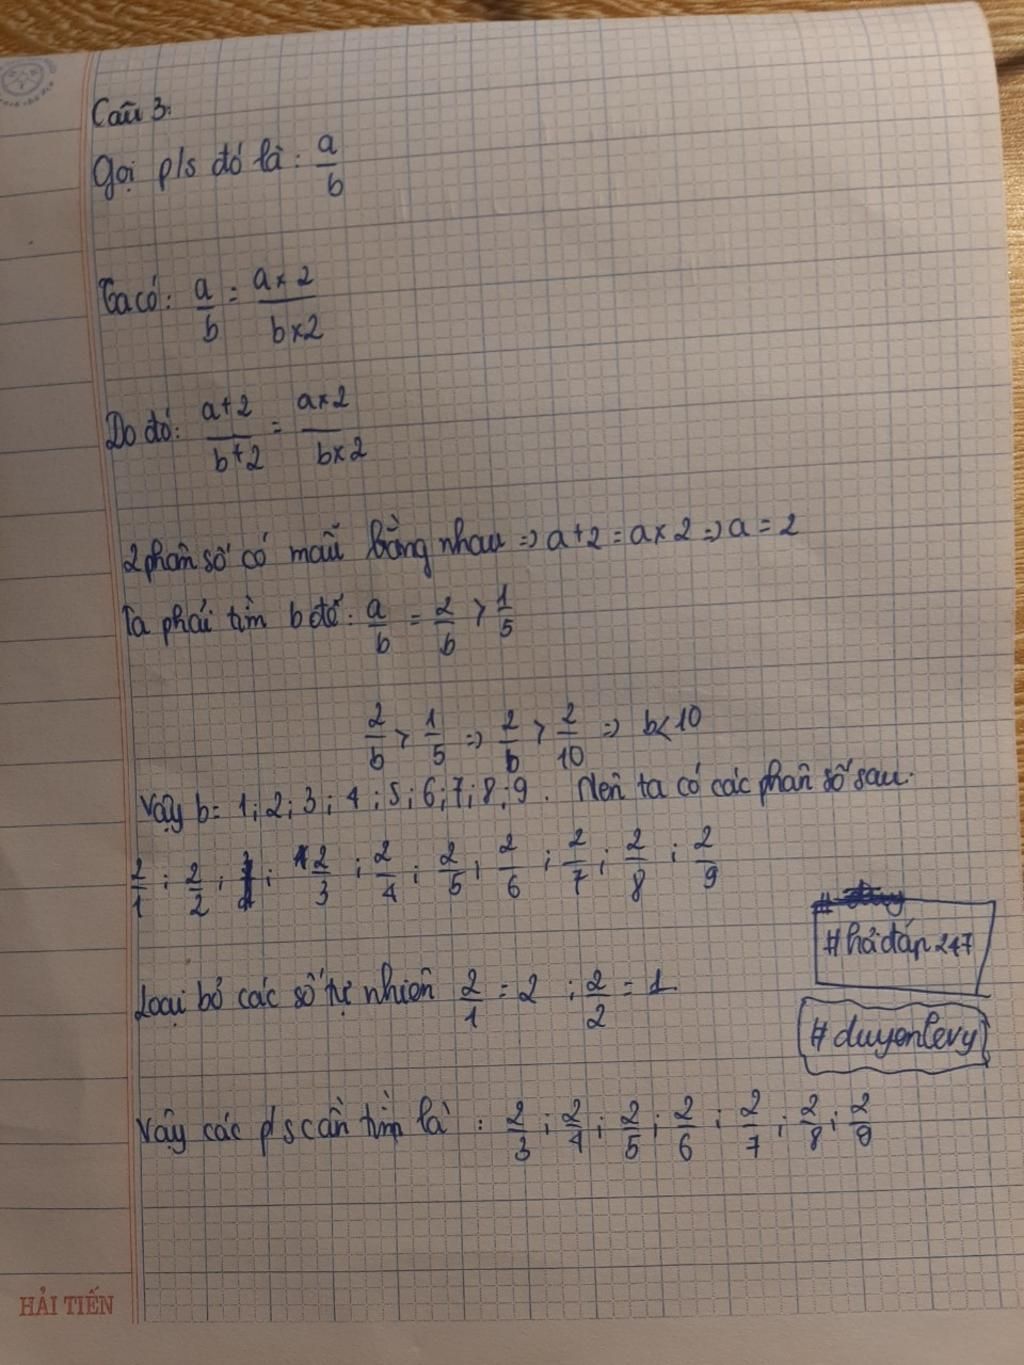 Câu 3:
Gọi p/s đó là: a/b
Ta có: a/b = a×2 / b×2
Do đó: a+2 / b+2 = a×2 / b×2
2 phân số có mẫu bằng nhau => a+2 = a×2 => a = 2
Ta phải tìm b để: a/b = 2/b > 1/5
2/b > 1/5 => 2/b > 2/10 => b<10
Vậy b = 1; 2; 3; 4; 5; 6; 7; 8; 9. Nên ta có các phân số sau.
2/1; 2/2; 2/3; 2/4; 2/5; 2/6; 2/7; 2/8; 2/9
#hỏiđáp247
Loại bỏ các số tự nhiên 2/1 = 2; 2/2 = 1
#duyenlevy
Vậy các p/s cần tìm là: 2/3; 2/4; 2/5; 2/6; 2/7; 2/8; 2/9
HẢI TIẾN